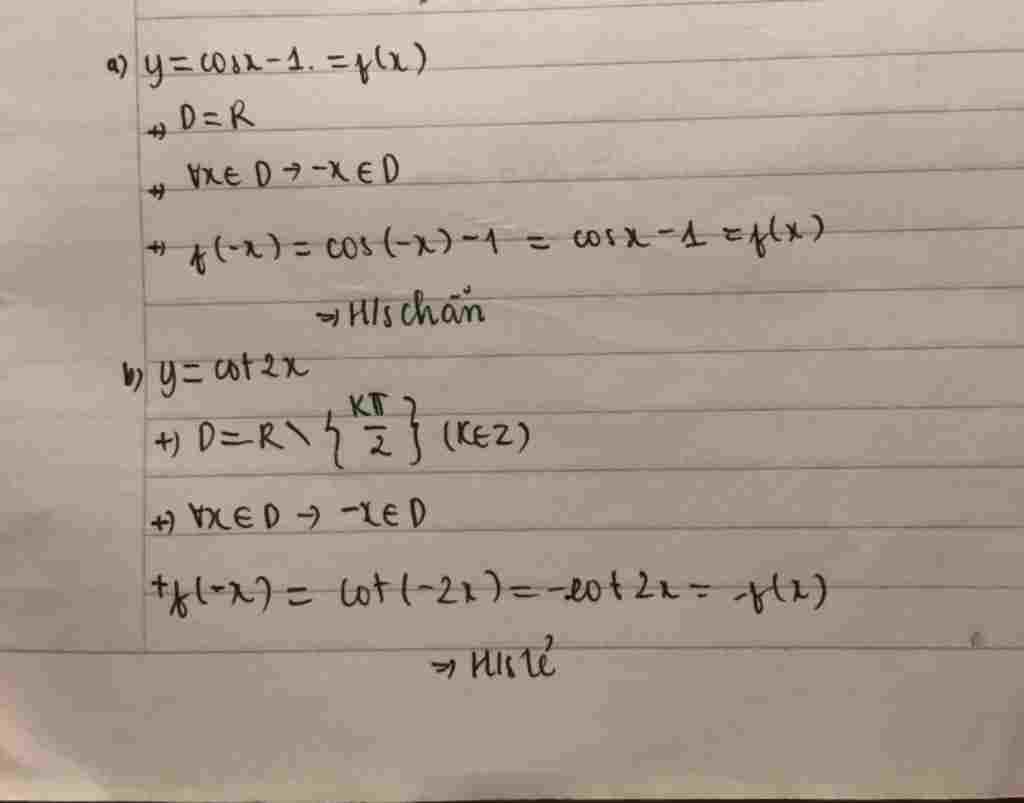 a) y = cosx - 1. = f(x)
+) D = R
+) ∀x ∈ D → -x ∈ D
+) f(-x) = cos(-x) - 1 = cosx - 1 = f(x)
⇒ H/s chẵn
b) y = cot2x
+) D = R \ { Kπ/2 } (K∈Z)
+) ∀x ∈ D → -x ∈ D
+ f(-x) = cot(-2x) = -cot2x = -f(x)
⇒ H/s lẻ